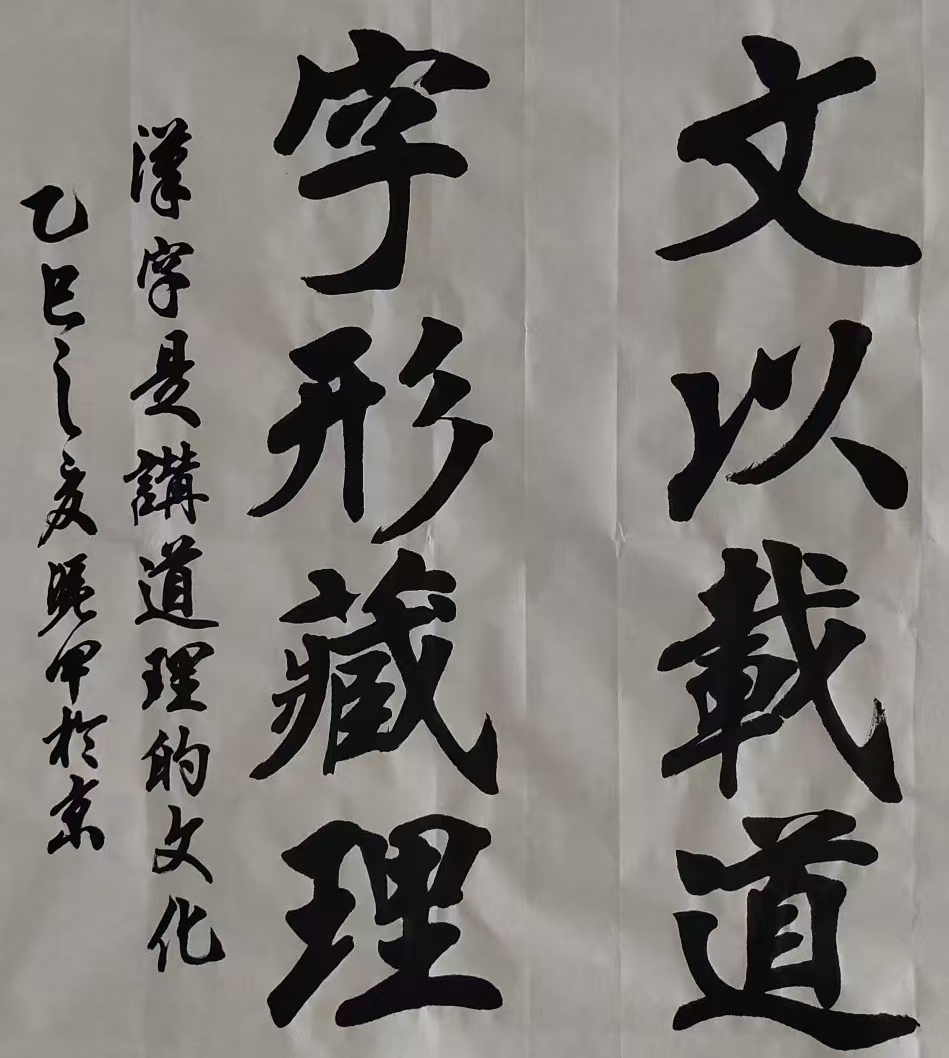 文以載道
字形藏理
漢字是講道理的文化
乙巳之夏 甲於京